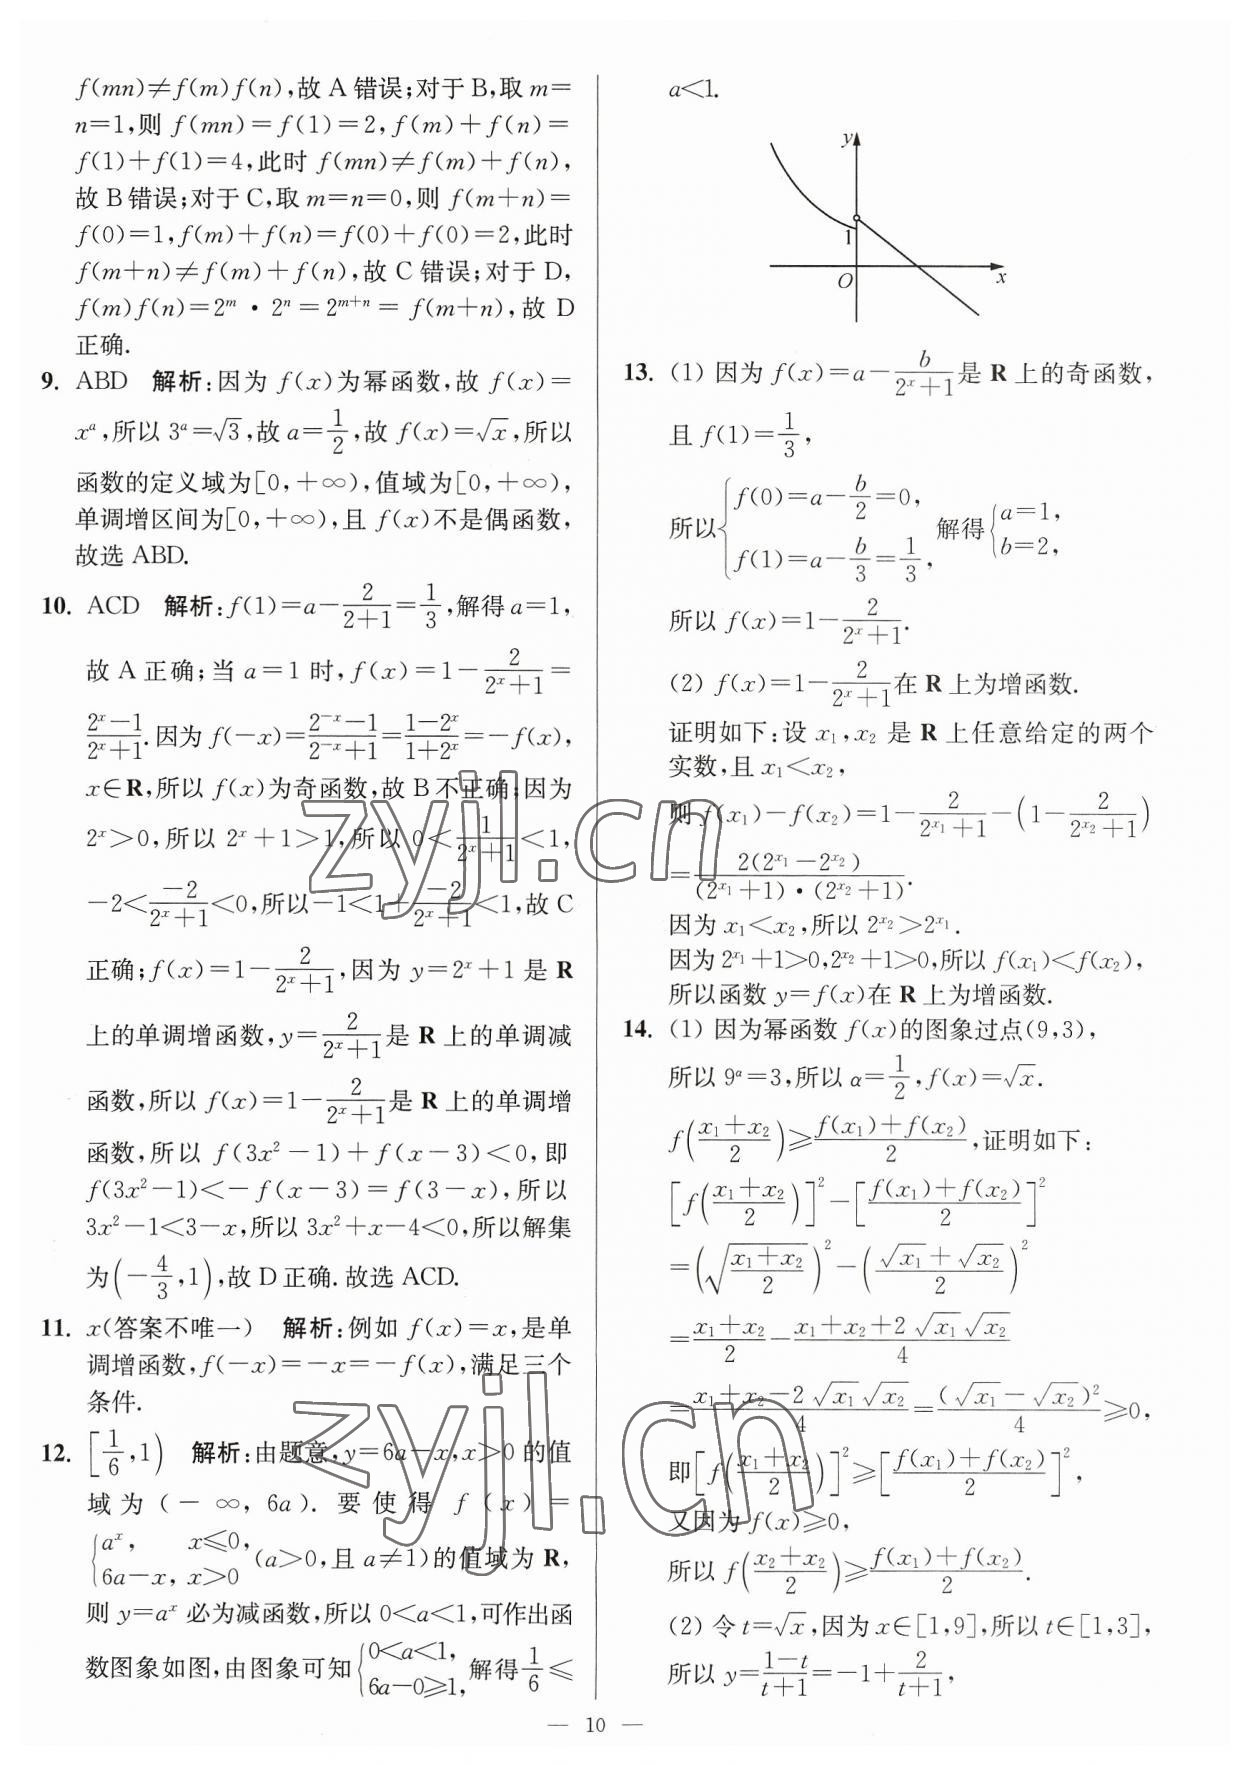 f(mn)≠f(m)f(n),故 A 错误;对于 B,取 m=
n=1,则 f(mn)=f(1)=2,f(m)+f(n)=
f(1)+f(1)=4,此时 f(mn)≠f(m)+f(n),
故 B 错误;对于 C,取 m=n=0,则 f(m+n)=
f(0)=1,f(m)+f(n)=f(0)+f(0)=2,此时
f(m+n)≠f(m)+f(n),故 C 错误;对于 D,
f(m)f(n)=2^m · 2^n=2^{m+n}= f(m+n),故 D
正确.
9. ABD 解析:因为 f(x)为幂函数,故 f(x)=
x^a,所以 3^a=√3,故 a=1/2,故 f(x)=√x,所以
函数的定义域为[0,+∞),值域为[0,+∞),
单调增区间为[0,+∞),且 f(x)不是偶函数,
故选 ABD.
10. ACD 解析:f(1)=a-2/(2+1)=1/3,解得 a=1,
故 A 正确;当 a=1 时,f(x)=1-2/(2^x+1)=
(2^x-1)/(2^x+1).因为 f(-x)=(2^{-x}-1)/(2^{-x}+1)=(1-2^x)/(1+2^x)=-f(x),
x∈R,所以 f(x)为奇函数,故 B 不正确;因为
2^x>0,所以 2^x+1>1,所以 0<1/(2^x+1)<1,
-2<-2/(2^x+1)<0,所以-1<1+-2/(2^x+1)<1,故 C
正确;f(x)=1-2/(2^x+1),因为 y=2^x+1 是 R
上的单调增函数,y=2/(2^x+1)是 R 上的单调减
函数,所以 f(x)=1-2/(2^x+1)是 R 上的单调增
函数,所以 f(3x²-1)+f(x-3)<0,即
f(3x²-1)<-f(x-3)=f(3-x),所以
3x²-1<3-x,所以 3x²+x-4<0,所以解集
为(-4/3,1),故 D 正确.故选 ACD.
11. x(答案不唯一) 解析:例如 f(x)=x,是单
调增函数,f(-x)=-x=-f(x),满足三个
条件.
12. [1/6,1) 解析:由题意,y=6a-x,x>0 的值
域为(-∞,6a).要使得 f(x)=
{a^x, x≤0,
6a-x, x>0 (a>0,且 a≠1)的值域为 R,
则 y=a^x 必为减函数,所以 0<a<1,可作出函
数图象如图,由图象可知{0<a<1, 6a-0≥1, 解得 1/6≤
a<1.
y
1
O
x
13. (1) 因为 f(x)=a-b/(2^x+1)是 R 上的奇函数,
且 f(1)=1/3,
所以{f(0)=a-b/2=0, f(1)=a-b/3=1/3, 解得{a=1, b=2,
所以 f(x)=1-2/(2^x+1).
(2) f(x)=1-2/(2^x+1)在 R 上为增函数.
证明如下:设 x₁,x₂ 是 R 上任意给定的两个
实数,且 x₁<x₂,
则 f(x₁)-f(x₂)=1-2/(2^{x₁}+1)-(1-2/(2^{x₂}+1))
=2(2^{x₁}-2^{x₂})/((2^{x₁}+1)·(2^{x₂}+1)).
因为 x₁<x₂,所以 2^{x₂}>2^{x₁}.
因为 2^{x₁}+1>0,2^{x₂}+1>0,所以 f(x₁)<f(x₂),
所以函数 y=f(x)在 R 上为增函数.
14. (1) 因为幂函数 f(x)的图象过点(9,3),
所以 9^α=3,所以 α=1/2,f(x)=√x.
f((x₁+x₂)/2)≥(f(x₁)+f(x₂))/2,证明如下:
[f((x₁+x₂)/2)]²-[(f(x₁)+f(x₂))/2]²
=(√((x₁+x₂)/2))²-((√x₁+√x₂)/2)²
=(x₁+x₂)/2-(x₁+x₂+2√x₁√x₂)/4
=(x₁+x₂-2√x₁√x₂)/4=(√x₁-√x₂)²/4≥0,
即[f((x₁+x₂)/2)]²≥[(f(x₁)+f(x₂))/2]²,
又因为 f(x)≥0,
所以 f((x₂+x₂)/2)≥(f(x₁)+f(x₂))/2.
(2) 令 t=√x,因为 x∈[1,9],所以 t∈[1,3],
所以 y=(1-t)/(t+1)=-1+2/(t+1),
— 10 —
zyjl.cn
zyjl.cn